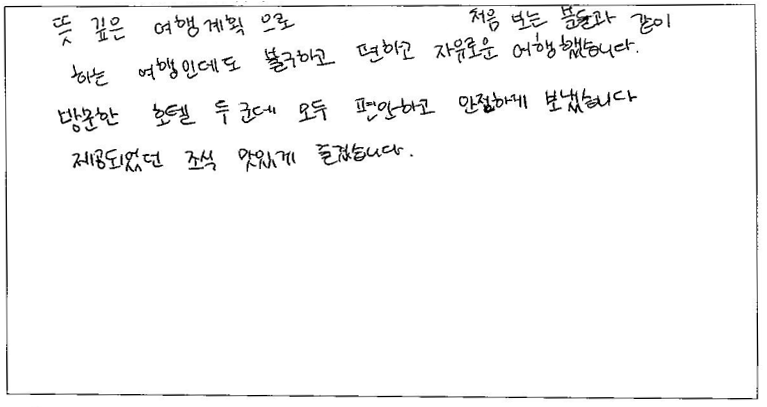 뜻 깊은 여행계획 으로 처음 보는 분들과 같이
하는 여행인데도 불구하고 편하고 자유로운 여행했습니다.
방문한 호텔 두군데 모두 편안하고 안전하게 보냈습니다
제공되었던 조식 맛있게 즐겼습니다.